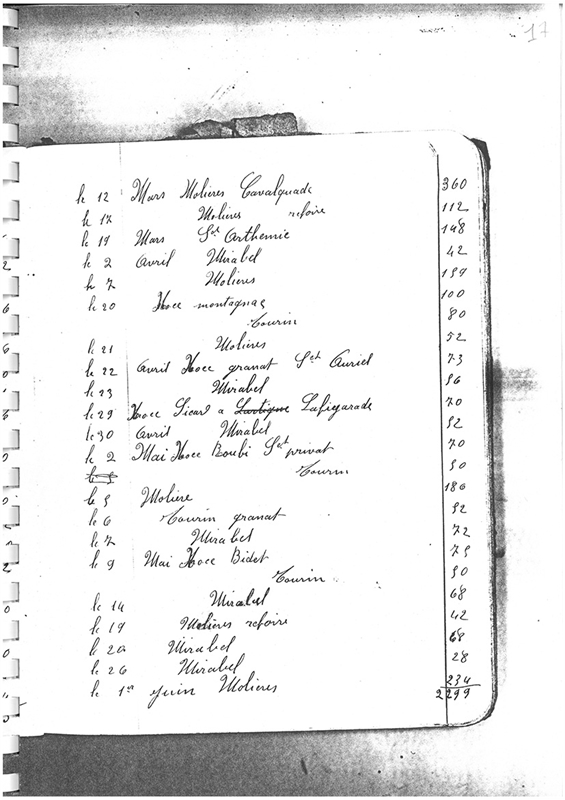 17
le 12 Mars Molières Cavalquade 360
le 17 Molières refoire 112
le 19 Mars Sct Arthemie 148
le 2 Avril Mirabel 42
le 7 Molières 159
le 20 Noce montagnac 100
Tourin 80
le 21 Molières 52
le 22 Avril Noce granat Sct Auriel 73
le 23 Mirabel 56
le 29 Noce Sicard a Lartigue Lafigarade 70
le 30 Avril Mirabel 52
le 2 Mai Noce Boubi Sct privat 70
Tourin 50
le 5 Molière 186
le 6 Tourin granat 52
le 7 Mirabel 72
le 9 Mai Noce Bidet 75
Tourin 50
le 14 Mirabel 68
le 19 Molières refoire 42
le 20 Mirabel 68
le 26 Mirabel 28
le 1er Juin Molières 234
2299